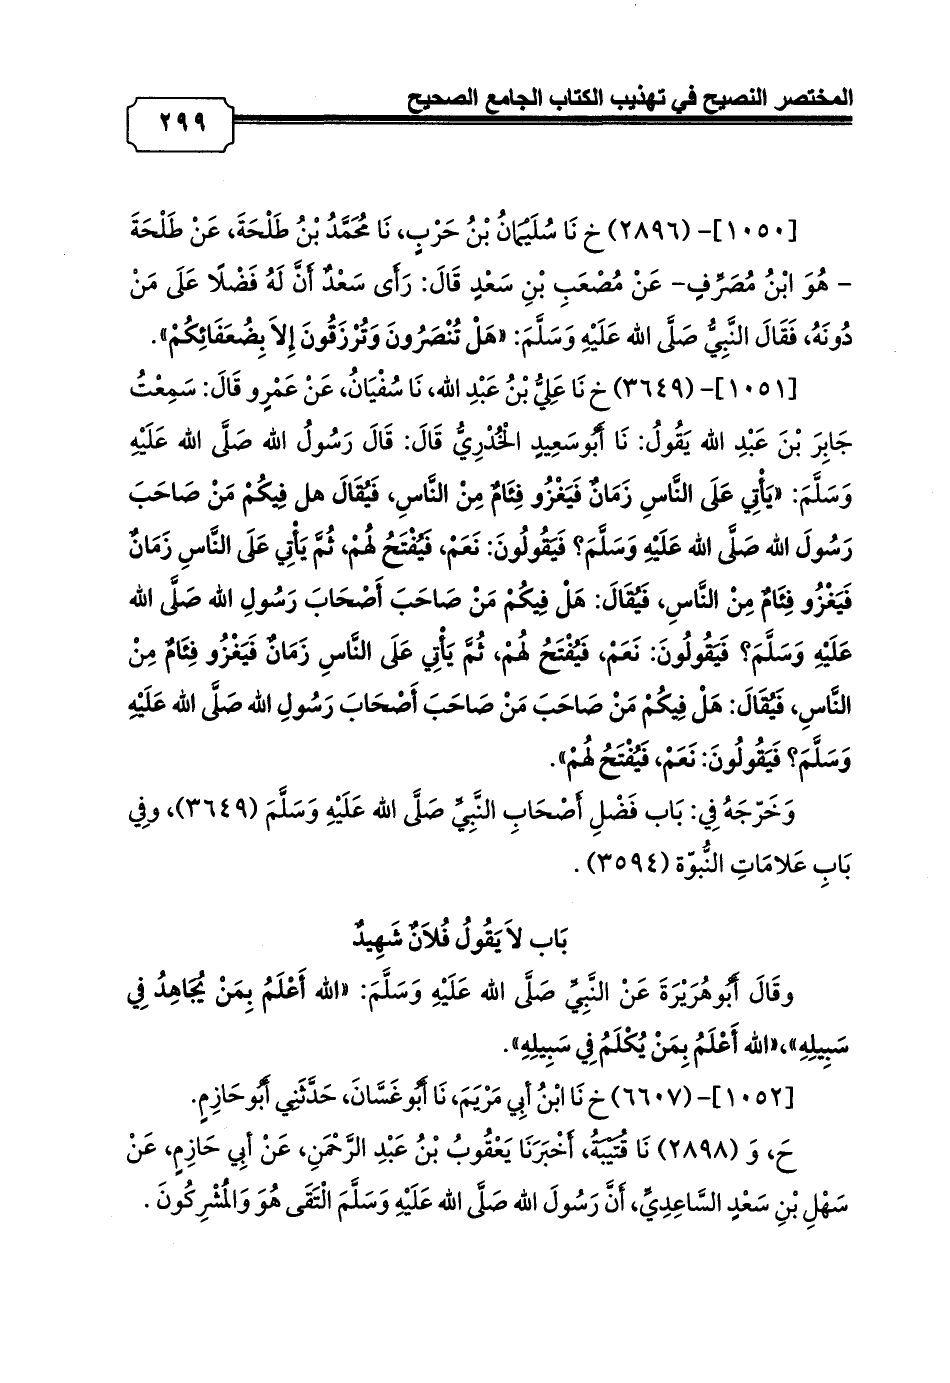 المختصر النصيح في تهذيب الكتاب الجامع الصحيح
٢٩٩
[١٠٥٠]- (٢٨٩٦) خ نَا سُلَيْمَانُ بْنُ حَرْبٍ، نَا مُحَمَّدُ بْنُ طَلْحَةَ، عَنْ طَلْحَةَ
- هُوَ ابْنُ مُصَرِّفٍ- عَنْ مُصْعَبِ بْنِ سَعْدٍ قَالَ: رَأَى سَعْدٌ أَنَّ لَهُ فَضْلًا عَلَى مَنْ
دُونَهُ، فَقَالَ النَّبِيُّ صَلَّى الله عَلَيْهِ وَسَلَّمَ: «هَلْ تُنْصَرُونَ وَتُرْزَقُونَ إِلاَ بِضُعَفَائِكُمْ».
[١٠٥١]- (٣٦٤٩) خ نَا عَلِيُّ بْنُ عَبْدِ الله، نَا سُفْيَانُ، عَنْ عَمْرٍو قَالَ: سَمِعْتُ
جَابِرَ بْنَ عَبْدِ الله يَقُولُ: نَا أَبُوسَعِيدٍ الْخُدْرِيُّ قَالَ: قَالَ رَسُولُ الله صَلَّى الله عَلَيْهِ
وَسَلَّمَ: «يَأْتِي عَلَى النَّاسِ زَمَانٌ فَيَغْزُو فِئَامٌ مِنْ النَّاسِ، فَيُقَالَ هل فِيكُمْ مَنْ صَاحَبَ
رَسُولَ الله صَلَّى الله عَلَيْهِ وَسَلَّمَ؟ فَيَقُولُونَ: نَعَمْ، فَيُفْتَحُ لَهُمْ، ثُمَّ يَأْتِي عَلَى النَّاسِ زَمَانٌ
فَيَغْزُو فِئَامٌ مِنْ النَّاسِ، فَيُقَالَ: هَلْ فِيكُمْ مَنْ صَاحَبَ أَصْحَابَ رَسُولِ الله صَلَّى الله
عَلَيْهِ وَسَلَّمَ؟ فَيَقُولُونَ: نَعَمْ، فَيُفْتَحُ لَهُمْ، ثُمَّ يَأْتِي عَلَى النَّاسِ زَمَانٌ فَيَغْزُو فِئَامٌ مِنْ
النَّاسِ، فَيُقَالَ: هَلْ فِيكُمْ مَنْ صَاحَبَ مَنْ صَاحَبَ أَصْحَابَ رَسُولِ الله صَلَّى الله عَلَيْهِ
وَسَلَّمَ؟ فَيَقُولُونَ: نَعَمْ، فَيُفْتَحُ لَهُمْ».
وَخَرّجَهُ فِي: بَاب فَضْلِ أَصْحَابِ النَّبِيِّ صَلَّى الله عَلَيْهِ وَسَلَّمَ (٣٦٤٩)، وفِي
بَابِ عَلامَاتِ النُّبوّة (٣٥٩٤) .
بَاب لاَ يَقُولُ فُلاَنٌ شَهِيدٌ
وقَالَ أَبُوهُرَيْرَةَ عَنْ النَّبِيِّ صَلَّى الله عَلَيْهِ وَسَلَّمَ: «الله أَعْلَمُ بِمَنْ يُجَاهِدُ فِي
سَبِيلِهِ»،«الله أَعْلَمُ بِمَنْ يُكْلَمُ فِي سَبِيلِهِ».
[١٠٥٢]- (٦٦٠٧) خ نَا ابْنُ أبِي مَرْيَمَ، نَا أَبُوغَسَّانَ، حَدَّثَنِي أَبُوحَازِمٍ.
حَ، وَ (٢٨٩٨) نَا قُتَيْبَةُ، أَخْبَرَنَا يَعْقُوبُ بْنُ عَبْدِ الرَّحْمَنِ، عَنْ أبِي حَازِمٍ، عَنْ
سَهْلِ بْنِ سَعْدٍ السَّاعِدِيِّ، أَنَّ رَسُولَ الله صَلَّى الله عَلَيْهِ وَسَلَّمَ الْتَقَى هُوَ وَالْمُشْرِكُونَ .